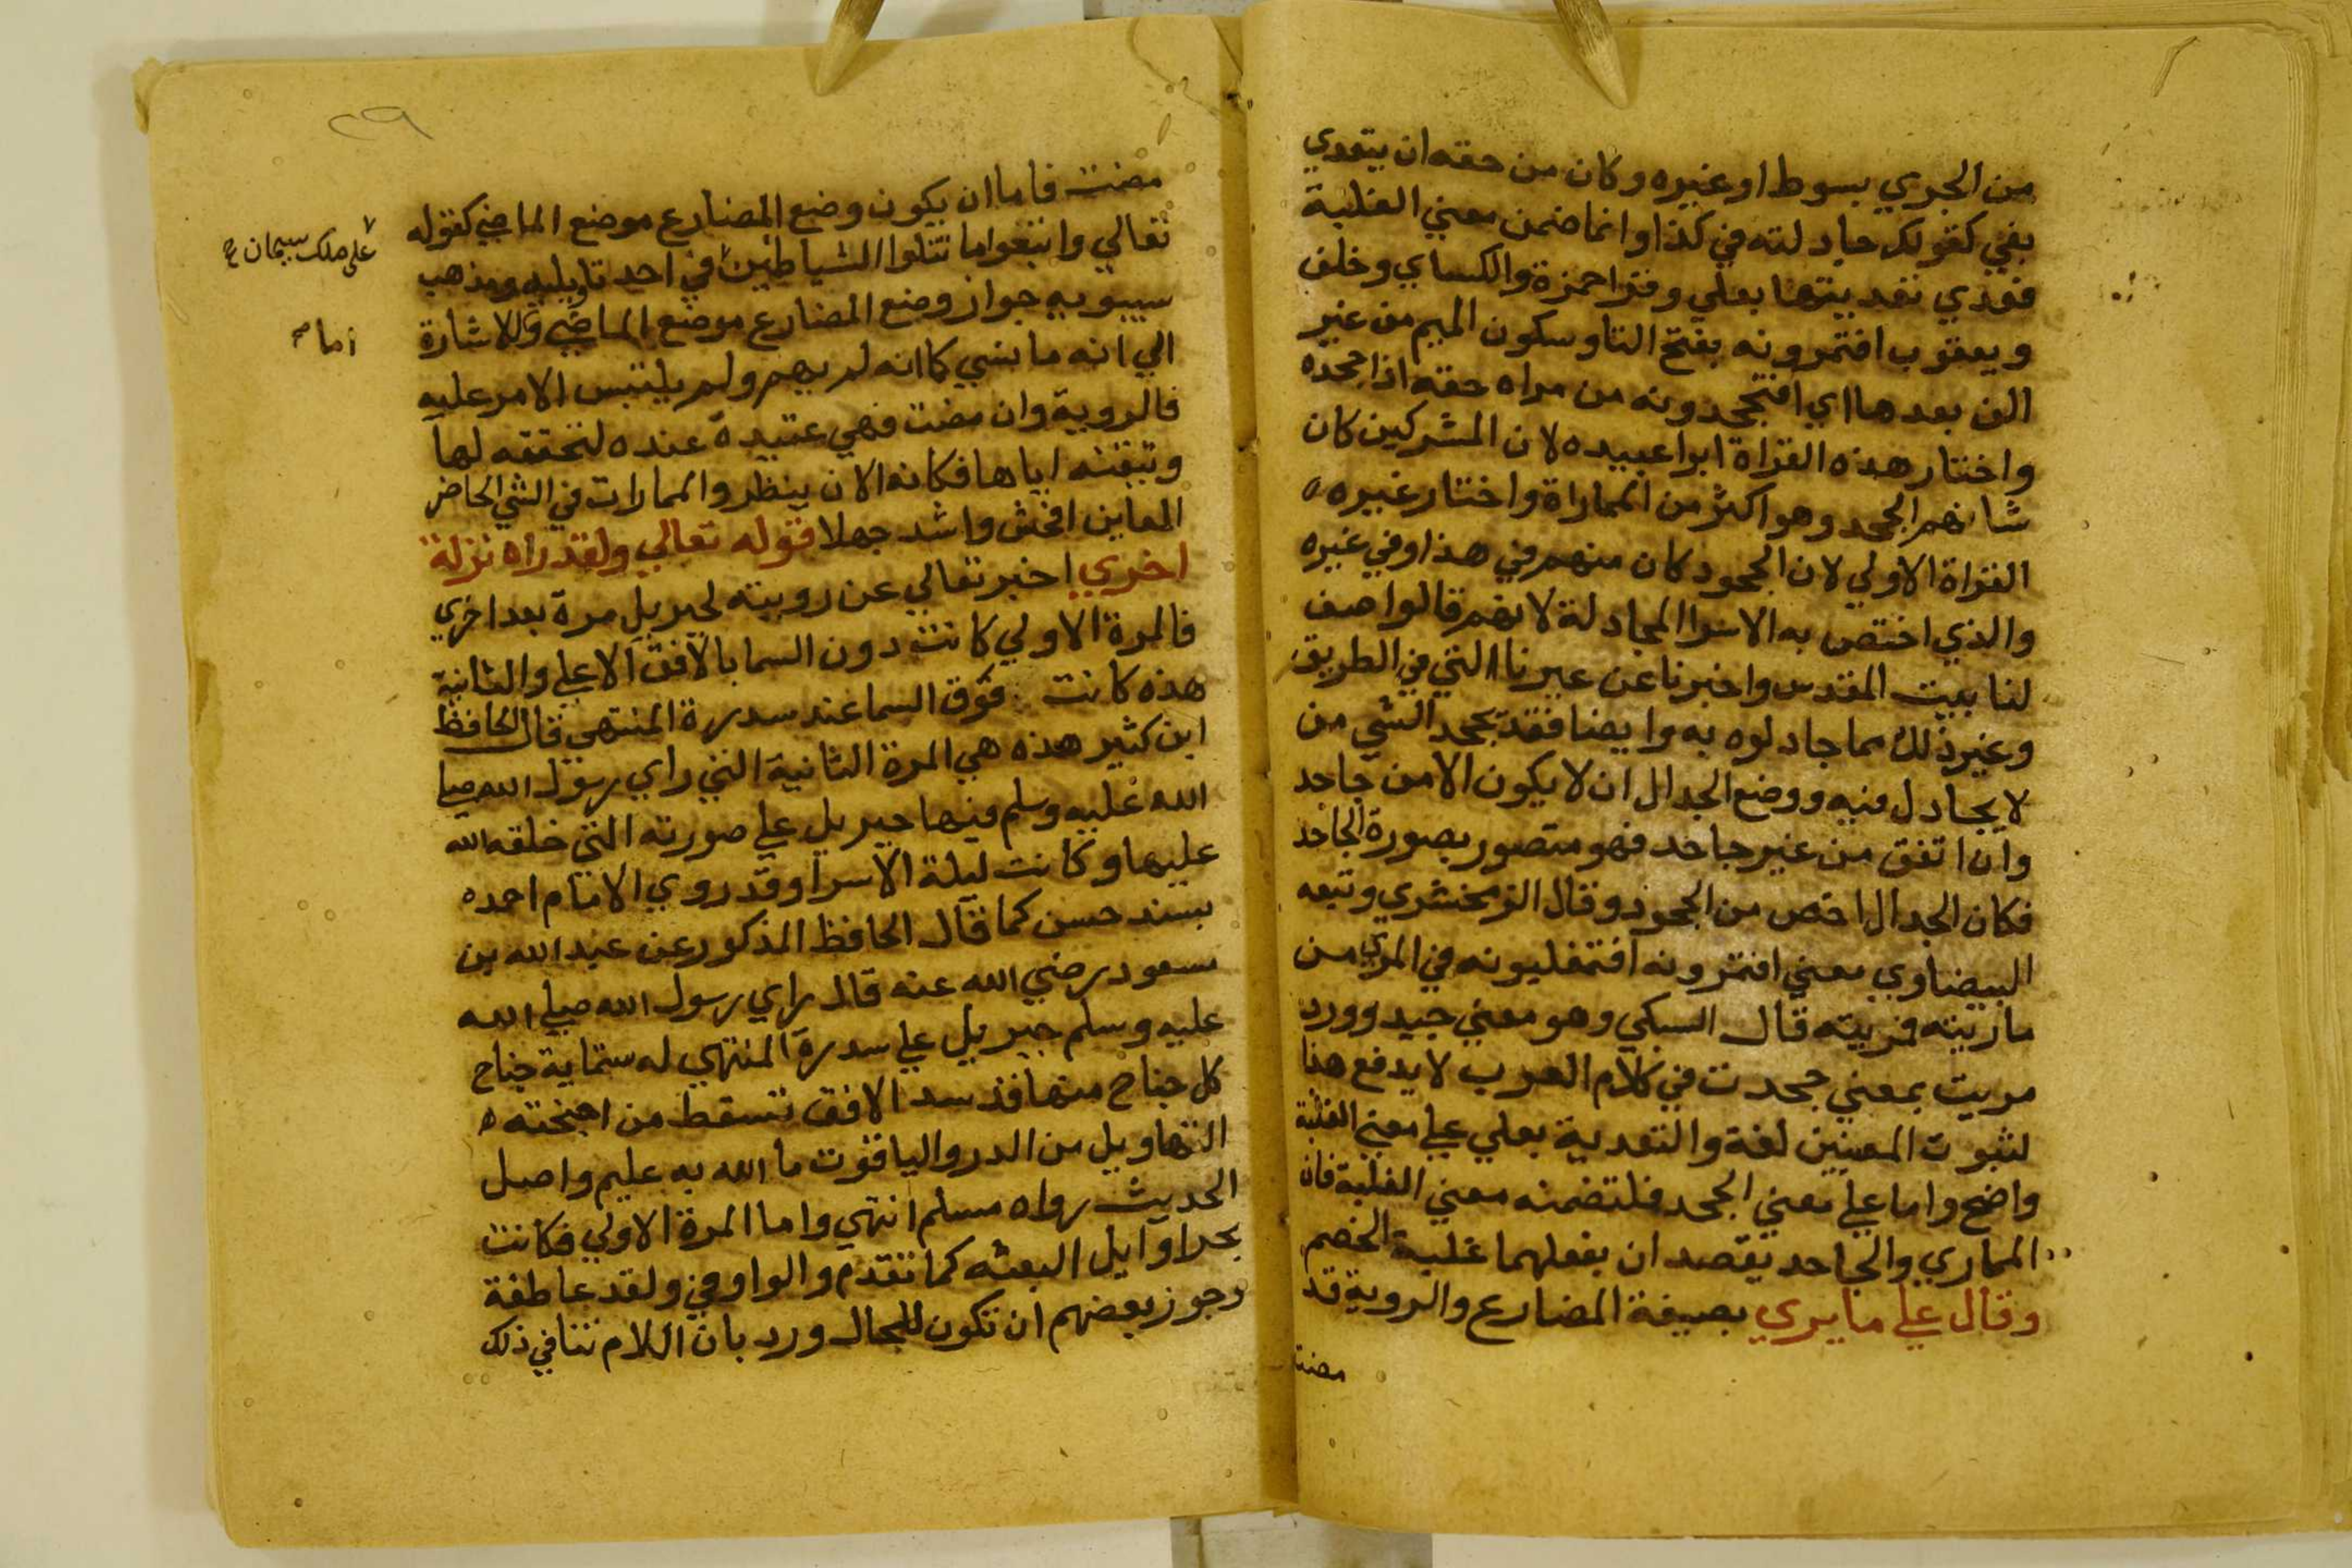 من الجري بسوط او غيره وكان من حقه ان يتعدي
بفي كقولك جادلته في كذا وانما ضمن معني الغلبة
فعدي تعديتها بعلي وقرا حمزة والكساي وخلف
ويعقوب افتمرونه بفتح التا وسكون الميم من غير
الف بعدها اي افتجحدونه من مراه حقه اذا جحده
واختار هذه القراة ابوا عبيده لان المشركين كان
شانهم الجحد وهو اكثر من المماراة واختار غيره
القراة الاولي لان الجحود كان منهم في هذا وفي غيره
والذي اختص به الاسرا المجادلة لانهم قالوا صف
لنا بيت المقدس واخبرنا عن عيرنا التي في الطريق
وغير ذلك مما جادلوه به وايضا فقد يجحد الشي من
لا يجادل فيه ووضع الجدال ان لا يكون الا من جاحد
وان اتفق من غير جاحد فهو متصور بصورة الجاحد
فكان الجدال اخص من الجحود وقال الزمخشري وتبعه
البيضاوي معني افتمرونه افتغلبونه في المري من
ماريته فمريته قال السبكي وهو معني جيد وورد
مريت بمعني جحدت في كلام العرب لا يدفع هذا
لثبوت المعنيين لغة والتعدية بعلي علي معني الغلبة
واضح واما علي معني الجحد فلتضمنه معني الغلبة فان
المماري والجاحد يقصد ان بفعلهما غلبة الخصم
وقال علي ما يري بصيغة المضارع والروية قد
مضت
٢٩
مضت فاما ان يكون وضع المضارع موضع الماضي كقوله
تعالي واتبعوا ما تتلوا الشياطين في احد تاويليه ومذهب
على ملك سليمان
سيبويه جواز وضع المضارع موضع الماضي وللاشارة
اما
الي انه ما نسي كانه لم يهم ولم يلتبس الامر عليه
فالروية وان مضت فهي عتيدة عنده لتحققه لها
وتيقنه اياها فكانه الان ينظر والممارات في الشي الحاضر
المعاين افحش واشد جهلا قوله تعالي ولقد راه نزلة
اخري اخبر تعالي عن رويته لجبريل مرة بعد اخري
فالمرة الاولي كانت دون السما بالافق الاعلي والثانية
هذه كانت فوق السما عند سدرة المنتهي قال الحافظ
ابن كثير هذه هي المرة الثانية التي راي رسول الله صلي
الله عليه وسلم فيها جبريل علي صورته التي خلقه الله
عليها وكانت ليلة الاسرا وقد روي الامام احمد
بسند حسن كما قال الحافظ المذكور عن عبد الله بن
مسعود رضي الله عنه قال راي رسول الله صلي الله
عليه وسلم جبريل علي سدرة المنتهي له ستماية جناح
كل جناح منها قد سد الافق تسقط من اجنحته
التهاويل من الدر والياقوت ما الله به عليم واصل
الحديث رواه مسلم انتهي واما المرة الاولي فكانت
بحرا اوايل البعثه كما تقدم والواو في ولقد عاطفة
وجوز بعضهم ان تكون للحال ورد بان اللام تنافي ذلك